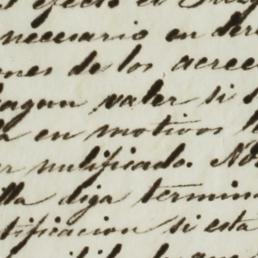 efecto el
necesario en der
nes de los acree
hagan valer si
en motivos
nulificado. No
lla diga termin
tificacion si esta